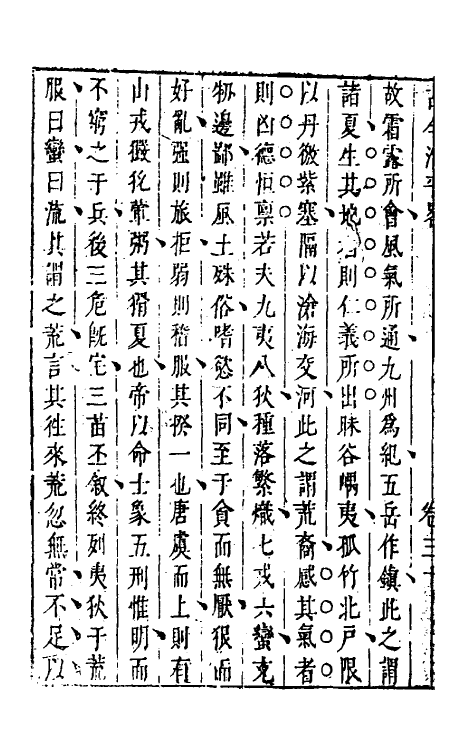 古今治平畧 卷三十
故霜露所會風氣所通九州為紀五岳作鎮此之謂
諸夏生其地者則仁義所出昧谷嵎夷孤竹北戶限
以丹徼紫塞隔以滄海交河此之謂荒裔感其氣者
則凶德恒禀若夫九夷八狄種落繁熾七戎六蠻充
牣邊鄙雖風土殊俗嗜慾不同至于貪而無厭狠而
好亂強則旅拒弱則稽服其揆一也唐虞而上則有
山戎獫狁葷粥其猾夏也帝以命士象五刑惟明而
不窮之于兵後三危旣宅三苗丕敘終列夷狄于荒
服曰蠻曰流其謂之荒言其徃來荒忽無常不足以